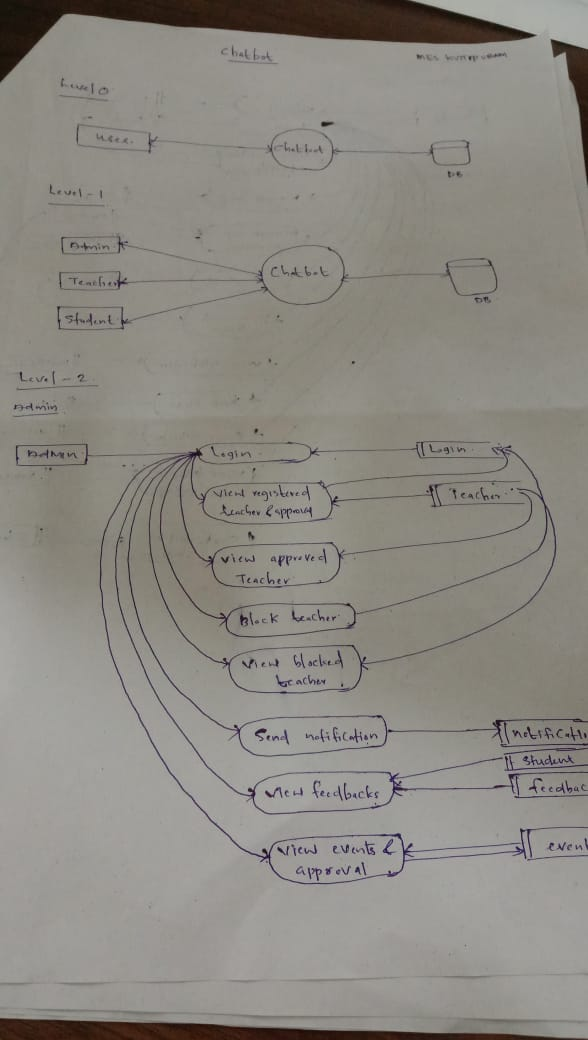 Chatbot
MES KUTTIPURAM
Level 0
User.
Chatbot
DB
Level - 1
Admin
Teacher
Student
Chatbot
DB
Level - 2
Admin
Admin
Login
Login
View registered
teacher & approval
Teacher
View approved
Teacher
Block teacher
View blocked
teacher
Send notification
notificatio
Student
View feedbacks
feedbac
View events &
approval
event